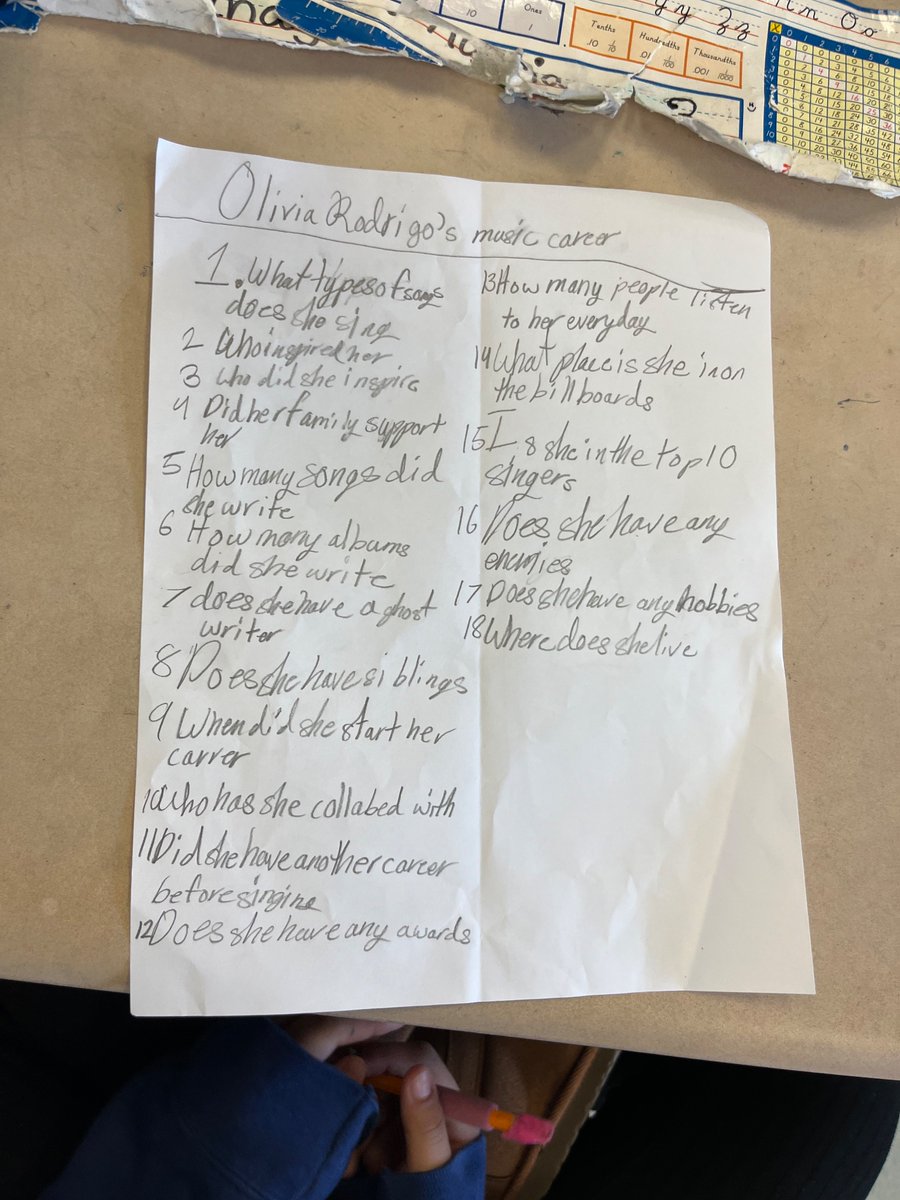 10
Ones
1
Tenths
.10
Hundredths
.01
Thousandths
.001
Yy Zz
Olivia Rodrigo's music career
1. What types of songs
does she sing
2 Who inspired her
3 who did she inspire
4 Did her family support
her
5 How many songs did
she write
6 How many albums
did she write
7 does she have a ghost
writer
8 Does she have siblings
9 When did she start her
carrer
10 who has she collabed with
11 Did she have another career
before singing
12 Does she have any awards
13 How many people listen
to her everyday
14 What place is she in on
the billboards
15 Is she in the top 10
singers
16 Does she have any
enemies
17 Does she have any hobbies
18 Where does she live